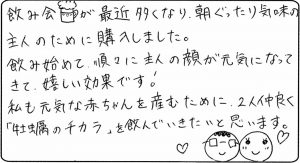 飲み会が最近多くなり、朝ぐったり気味の
主人のために購入しました。
飲み始めて、順々に主人の顔が元気になって
きて、嬉しい効果です!
私も元気な赤ちゃんを産むために、2人仲良く
「牡蠣のチカラ」を飲んでいきたいと思います。